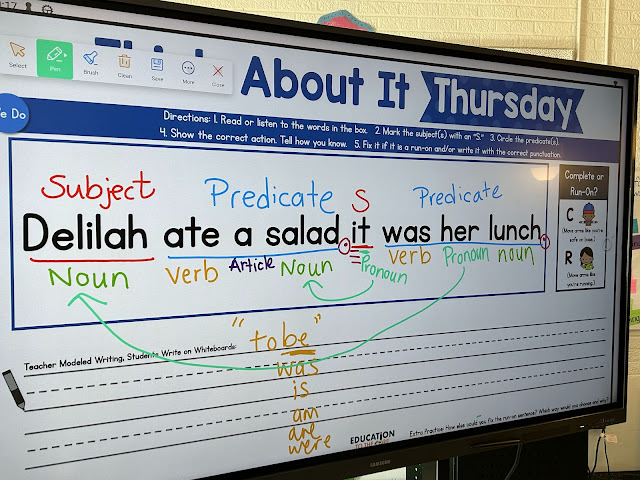 :17
Select
Pen
Brush
Clean
Save
More
Close
About It Thursday
e Do
Directions: 1. Read or listen to the words in the box. 2. Mark the subject(s) with an "S." 3. Circle the predicate(s).
4. Show the correct action. Tell how you know. 5. Fix it if it is a run-on and/or write it with the correct punctuation.
Subject Predicate S Predicate
Delilah ate a salad.it was her lunch.
Noun verb Article Noun Pronoun verb Pronoun noun
Complete or
Run-On?
C
(Move arms like you're
safe on base.)
R
(Move arms like
you're running.)
"to be"
Teacher Modeled Writing, Students Write on Whiteboards:
was
is
am
are
were
EDUCATION
TO THE CORE
Extra Practice: How else could you fix the run-on sentence? Which way would you choose and why?
SAMSUNG